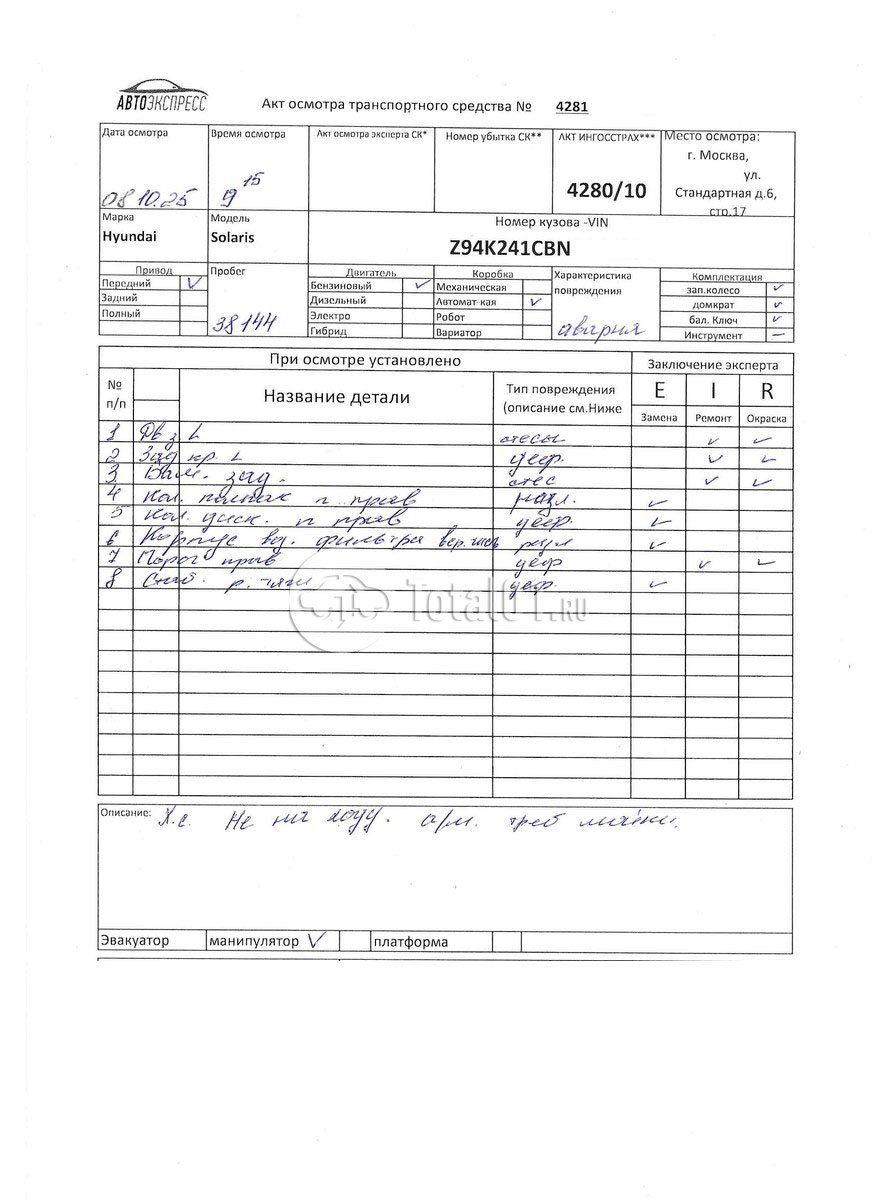 АВТОЭКСПРЕСС
Акт осмотра транспортного средства № 4281
Дата осмотра
Время осмотра
Акт осмотра эксперта СК*
Номер убытка СК**
АКТ ИНГОССТРАХ***
Место осмотра:
г. Москва,
ул.
Стандартная д.6,
стр.17
08.10.25
9 15
4280/10
Марка
Модель
Номер кузова -VIN
Hyundai
Solaris
Z94K241CBN
Привод
Пробег
Двигатель
Коробка
Характеристика
повреждения
Комплектация
Передний ✓
Бензиновый ✓
Механическая
зап.колесо ✓
Задний
Дизельный
Автомат-кая ✓
домкрат ✓
Полный
Электро
Робот
бал. Ключ ✓
Гибрид
Вариатор
Инструмент —
38144
авария
При осмотре установлено
Заключение эксперта
№
п/п
Название детали
Тип повреждения
(описание см.Ниже
E I R
Замена Ремонт Окраска
1 Дв з L стесы ✓ ✓
2 Зад кр. L деф. ✓ ✓
3 Бам. зад. стес ✓ ✓
4 Кол. колпак п прав разл. ✓
5 Кол. диск. п прав деф. ✓
6 Корпус воз. фильтра верх. часть разл ✓
7 Порог прав деф ✓ ✓
8 р. тяги деф. ✓
Total01.RU
Описание: Х.с. Не на ходу. а/м. треб мойки.
Эвакуатор
манипулятор ✓
платформа